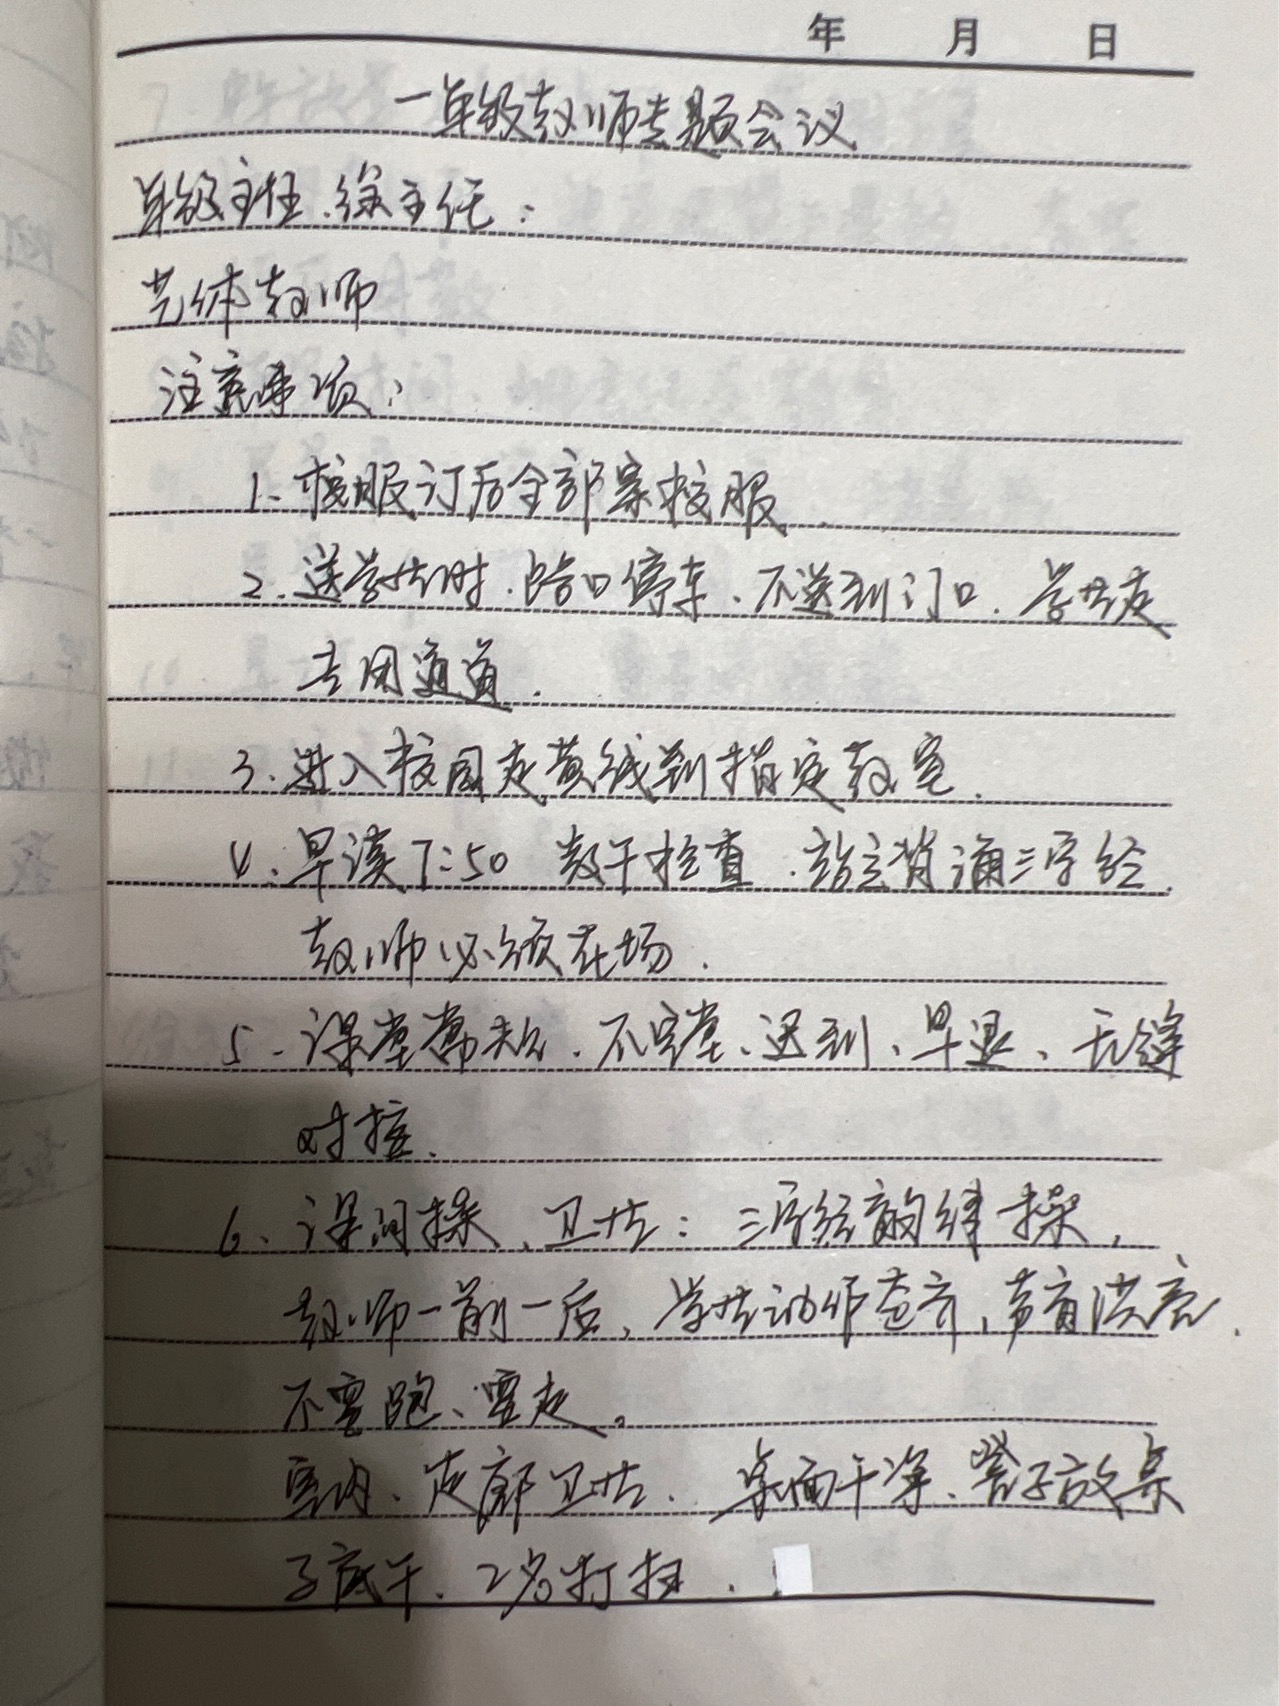 年 月 日
一年级教师专题会议
年级主任、徐主任：
艺体教师
注意事项：
1、校服订后全部穿校服.
2、送学生时、路口停车、不送到门口. 学生走
专用通道.
3、进入校园走黄线到指定教室.
4、早读7:50 数干检查、站立背诵三字经.
教师必须在场.
5、课堂常规、不空堂、迟到、早退、无缝
对接.
6、课间操、卫生：三字经韵律操,
教师一前一后, 学生动作整齐、声音洪亮.
不要跑、要走。
室内、走廊卫生. 桌面干净、凳子放桌
子底下、2名打扫.